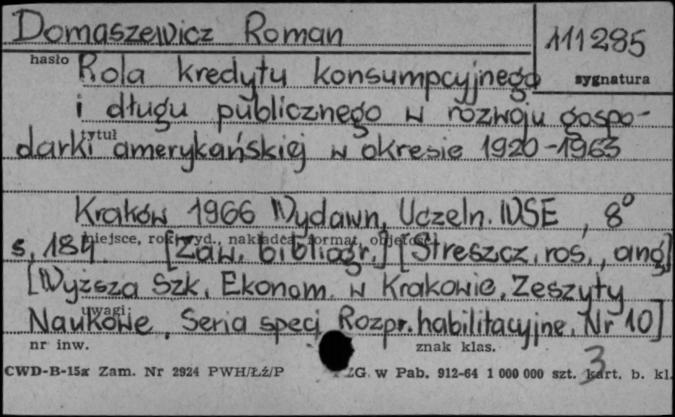 Domaszewicz Roman
111285
hasło
sygnatura
Rola kredytu konsumpcyjnego
i długu publicznego w rozwoju gospo-
tytuł
darki amerykańskiej w okresie 1920-1963
Kraków 1966 Wydawn. Uczeln. WSE, 8°
miejsce, rok wyd., nakładca, format, objętość
s. 184. [Zaw. bibliogr.] [Streszcz. ros., ang]
[Wyższa Szk. Ekonom. w Krakowie. Zeszyty
uwagi
Naukowe. Seria specj. Rozpr. habilitacyjne. Nr 10]
nr inw.
znak klas.
3
CWD-B-15a Zam. Nr 2924 PWH/Łź/P ZG. w Pab. 912-64 1 000 000 szt. kart. b. kl.